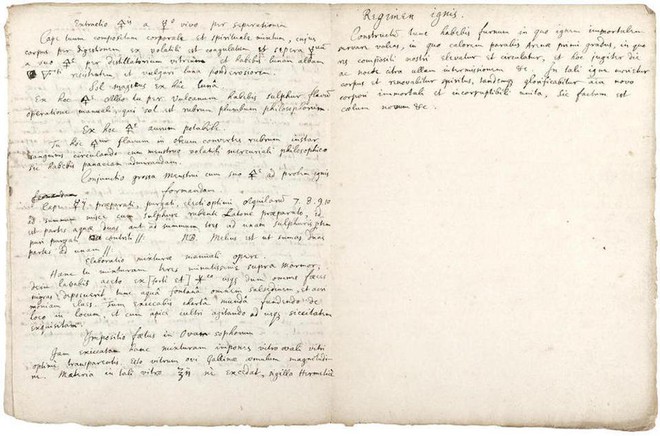 Extractio ☿ii a ☿o vivo per separationem
Cape tuum compositum corporale et spirituale mixtum, cujus
corpus per digestionem ex volatili et coagulatum et separa
a suo ☿o per distillatorium vitrium et habebis lunam albam
fixam et vulgari luna
Sol magicus ex hac luna
Ex hoc albo tu per Vulcanum habebis sulphur flavum
operatione manuali, qui sol est rubrum plumbum philosophorum
Ex hoc aurum potabile.
Tu hoc flavum in oleum convertes rubrum instar
sanguinis circulando cum menstruo volatili mercuriali philosophico
sic habebis panaceam admirandam.
Conjunctio grossa menstrui cum suo ad prolem ignis
formandam.
Cape præparati, purgati, electi optimi 7. 8. 9. 10
ad summum misce cum sulphure rubenti Latone præparato, id
est partes aquæ duas aut ad summum tres ad unam sulphuris
puri purgati et contriti // NB. Melius est ut sumas duas
partes ad unam //
Elaboratio mixturæ manuali opere.
Hanc tu mixturam teres minutissime supra marmor,
dein lavabis aceto ex [forti et] usq dum omnes fæces
nigras deposuerit, tunc aquâ fontanâ omnem salsedinem, et
moniam Tum exiccabis chartâ mundâ fundendo de
loco in locum, et cum apici cultri agitando ad usq siccitatem
exquisitam.
Impositio fœtus in Ovum sophorum
Jam exiccatam hanc mixturam impones vitro ovali vitri
optimi transparentis. Esto vitrum ovi Gallinæ æmulum magnitudi
ne. Materia in tali vitro ne excedat, sigilla Hermetice
Regimen ignis.
Constructum tunc habebis furnum in quo ignem immortalem
servare vales, in quo calorem parabis Arenæ primi gradus, in quo
ros compositi nostri elevatur et circulatur, et hoc jugiter die
ac nocte absq ullam intermissionem &c In tali igne morietur
corpus et renovabitur spiritus, tandemq glorificabitur aia novo
corpori immortali et incorruptibili unita, Sic factum est
cœlum novum &c.